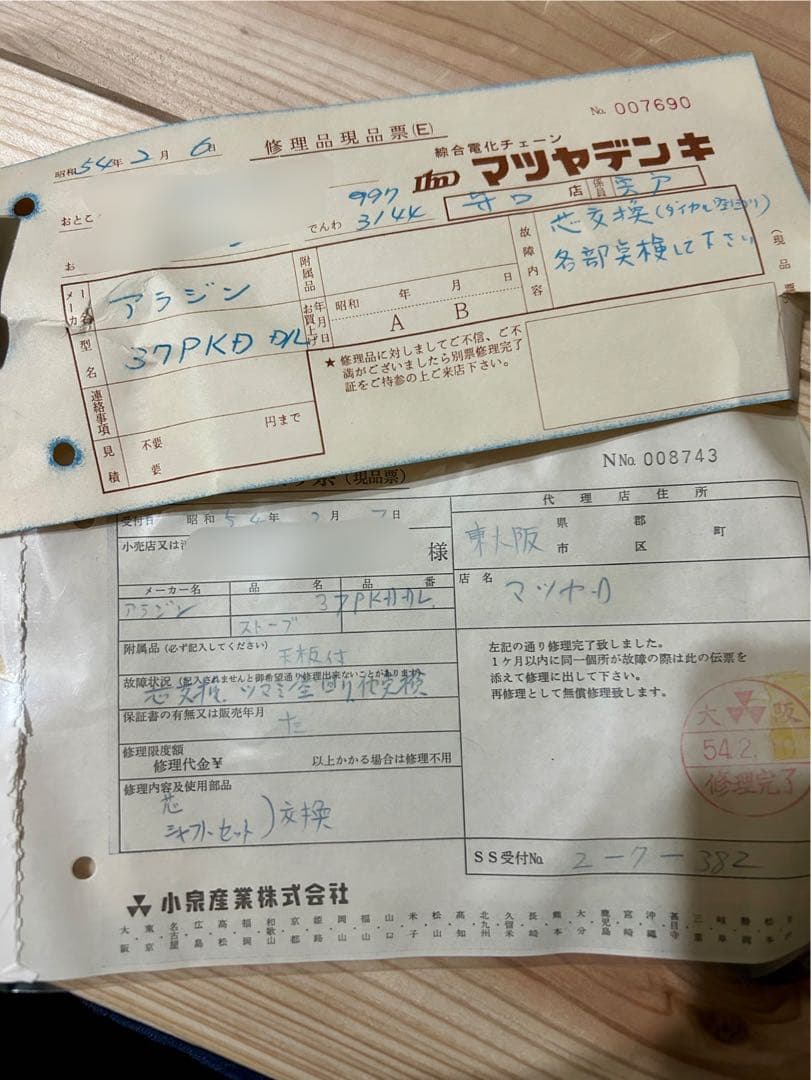 No. 007690
昭和54年2月6日
修理品現品票(E)
綜合電化チェーン
マツヤデンキ
おところ
でんわ 997 3144
守口 店
係員
お
メーカー名
アラジン
附属品
故障内容
芯交換(ダイヤル空回り)
各部点検して下さい
(現品票)
型名
37PKD D/L
お買上げ年月日
昭和 年 月 日
A B
★修理品に対しましてご不信、ご不
満がございましたら別票修理完了
証をご持参の上ご来店下さい。
連絡事項
円まで
見積
不要
要
NNo. 008743
(現品票)
受付日 昭和54年2月7日
代理店住所
小売店又は
様
東大阪 県 市 郡 区 町
メーカー名 品名 品番
アラジン
ストーブ
37PKDDL
店名
マツヤD
附属品(必ず記入してください)
天板付
故障状況(記入されませんと御希望通り修理出来ないことがあります)
芯交換、ツマミ空回り、他点検
保証書の有無又は販売年月
左記の通り修理完了致しました。
1ケ月以内に同一個所が故障の際は此の伝票を
添えて修理に出して下さい。
再修理として無償修理致します。
修理限度額
修理代金¥
以上かかる場合は修理不用
大阪
54.2.
修理完了
修理内容及使用部品
芯
シャフトセット)交換
SS受付No. 2-7-382
小泉産業株式会社
大阪・東京・名古屋・広島・高松・福岡・和歌山・京都・姫路・岡山・福山・山口・米子・松山・高知・北九州・久留米・長崎・熊本・大分・鹿児島・宮崎・沖縄・甚目寺・三重・岐阜・静岡・松本